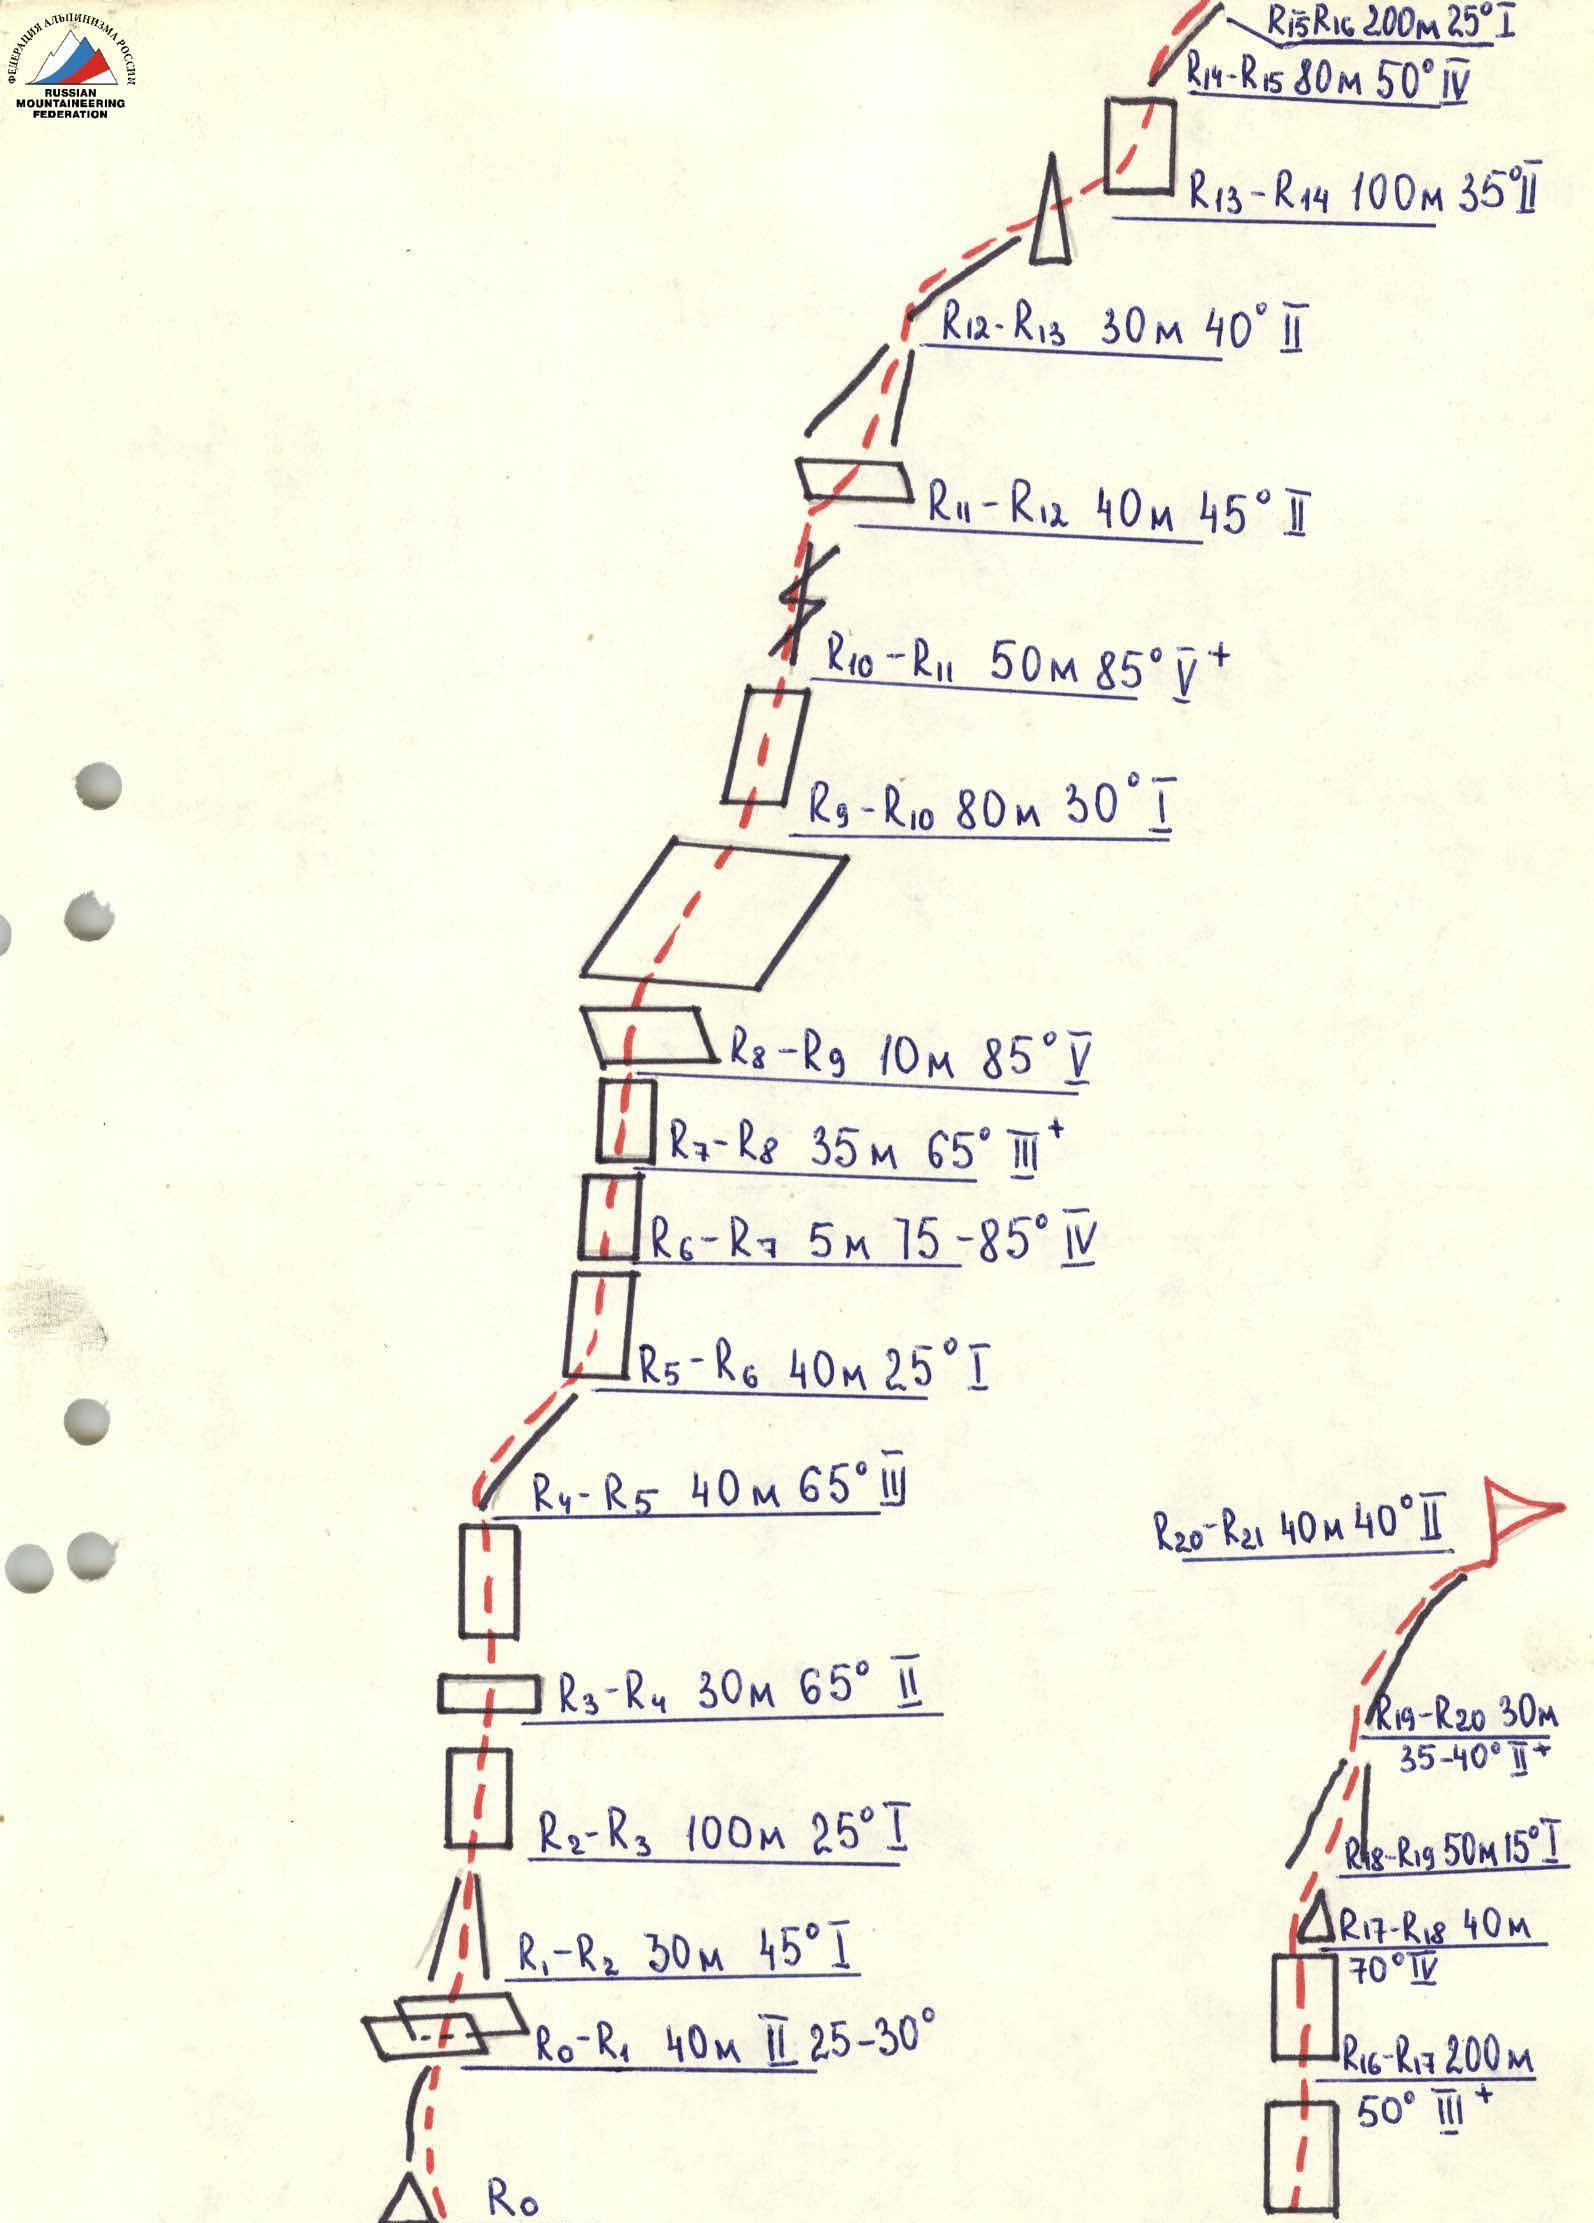 ФЕДЕРАЦИЯ АЛЬПИНИЗМА РОССИИ
RUSSIAN
MOUNTAINEERING
FEDERATION
R15R16 200м 25° I
R14-R15 80м 50° IV
R13-R14 100м 35° II
R12-R13 30м 40° II
R11-R12 40м 45° II
R10-R11 50м 85° V+
R9-R10 80м 30° I
R8-R9 10м 85° V
R7-R8 35м 65° III+
R6-R7 5м 75-85° IV
R5-R6 40м 25° I
R4-R5 40м 65° III
R3-R4 30м 65° II
R2-R3 100м 25° I
R1-R2 30м 45° I
R0-R1 40м II 25-30°
R0
R20-R21 40м 40° II
R19-R20 30м
35-40° II+
R18-R19 50м 15° I
R17-R18 40м
70° IV
R16-R17 200м
50° III+